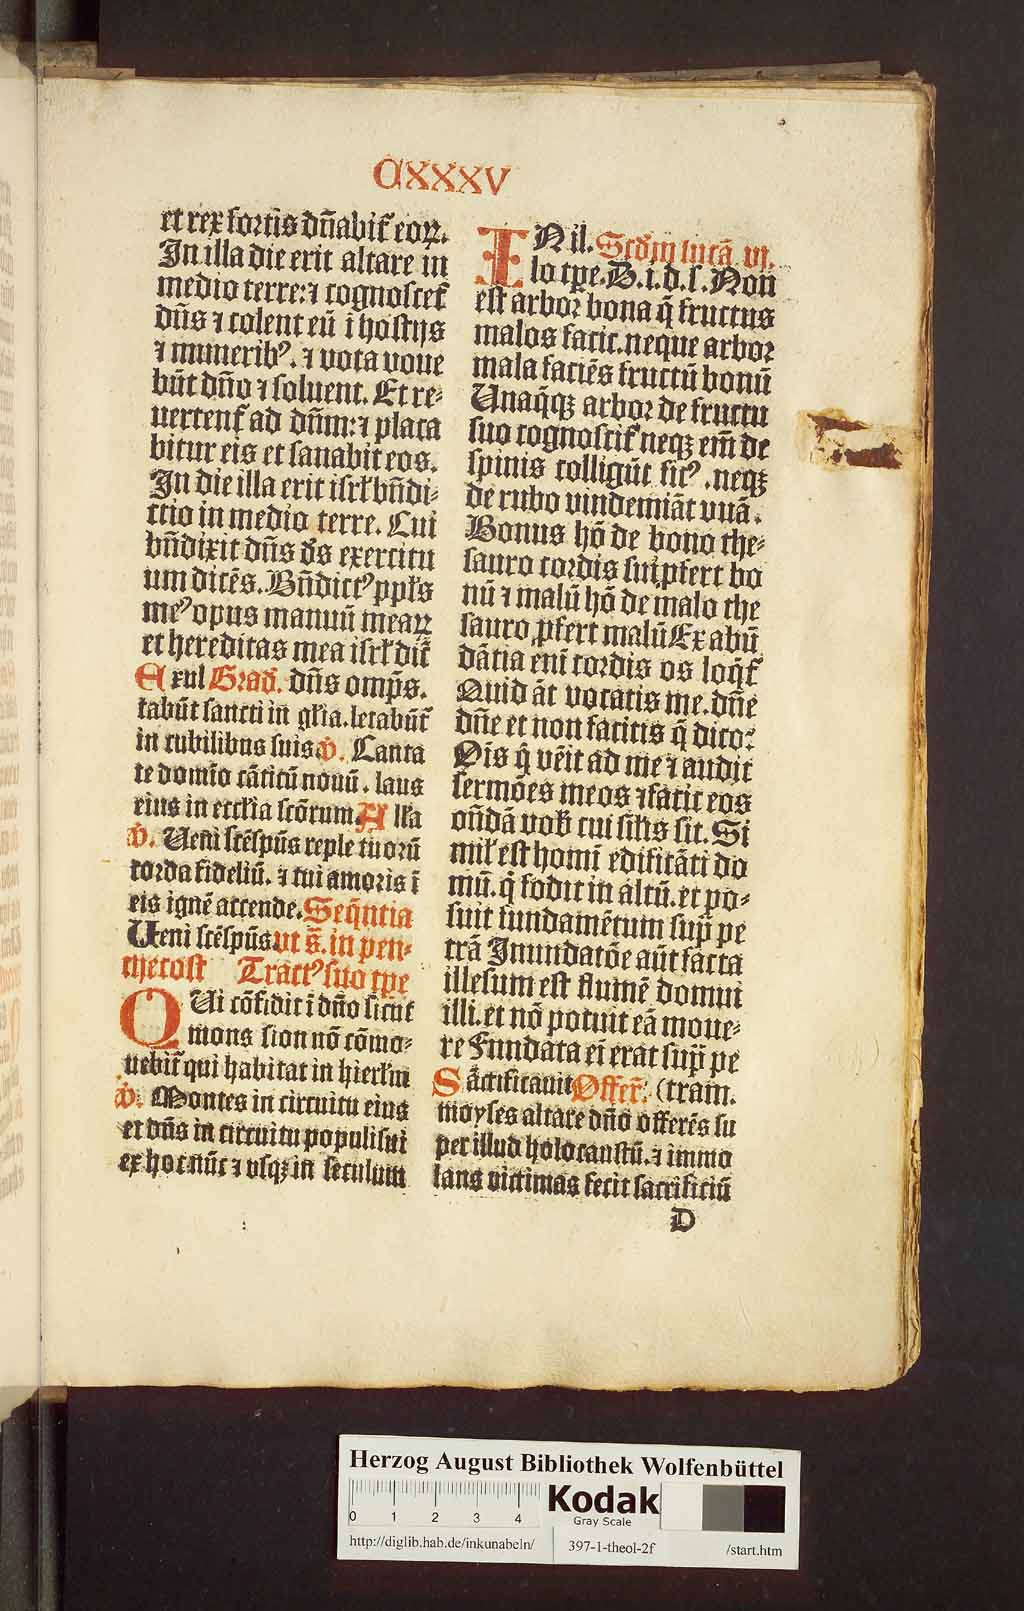 CXXXV
et rex fortis dn̄abit᷑ eoꝝ.
In illa die erit altare in
medio terre: ⁊ cognoscet᷑
dn̄s ⁊ colent eū ī hostijs
⁊ munerib⁹. ⁊ vota voue
būt dn̄o ⁊ soluent. Et re⸗
uertent᷑ ad dn̄m: ⁊ placa
bitur eis et sanabit eos.
In die illa erit isrł bn̄di⸗
ctio in medio terre. Cui
bn̄dixit dn̄s ds̄ exercitu
um dicēs. Bn̄dict⁹ ppl̄s
me⁹ opus manuū meaꝝ
et hereditas mea isrł dic̄
Exul Grad̄. dn̄s omp̄s.
tabūt sancti in gl̄ia. letabūt᷑
in cubilibus suis v̄. Canta
te domīo cāticū nouū. laus
eius in eccl̄ia scōrum. Al̄la
v̄. Ueni sctēsp̄us reple tuorū
corda fideliū. ⁊ tui amoris ī
eis ignē accende. Seq̄ntia
Ueni sctēsp̄us vt s̄. in pen⸗
thecost Tract⁹ suo tꝑe
QUi cōfidit ī dn̄o sicut
mons sion nō cōmo⸗
uebit᷑ qui habitat in hierl̄m
v̄. Montes in circuitu eius
et dn̄s in circuitu populi sui
ex hoc nūc ⁊ vsqꝫ in seculum
IN il. Scd̄m lucā vi.
lo tꝑe. D. i. d. s. Non
est arbor bona q̄ fructus
malos facit. neque arbor
mala faciēs fructū bonū
Unaq̄qꝫ arbor de fructu
suo cognoscit᷑ neqꝫ em̄ de
spinis colligūt fic⁹. neqꝫ
de rubo vindemiāt vuā.
Bonus hō de bono the⸗
sauro cordis sui ꝓfert bo
nū ⁊ malū hō de malo the
sauro ꝓfert malū Ex abū
dātia enī cordis os loq̄t᷑
Quid āt vocatis me. dn̄e
dn̄e et non facitis q̄ dico?
Oīs q̄ vēit ad me ⁊ audit
sermōes meos ⁊ facit eos
on̄dā vob̄ cui sil̄is sit. Si
mil̄ est homī edificāti do
mū. q̄ fodit in altū. et po⸗
suit fundamētum sup̄ pe
trā Inundatōe aūt facta
illesum est flumē domui
illi. et nō potuit eā moue⸗
re Fundata ei erat sup̄ pe
Sāctificauit Offer̄. (tram.
moyses altare dn̄o offerēs su
per illud holocaustū. ⁊ immo
lans victimas fecit sacrificiū
D
Herzog August Bibliothek Wolfenbüttel
0 1 2 3 4
Kodak
Gray Scale
http://diglib.hab.de/inkunabeln/ 397-1-theol-2f /start.htm